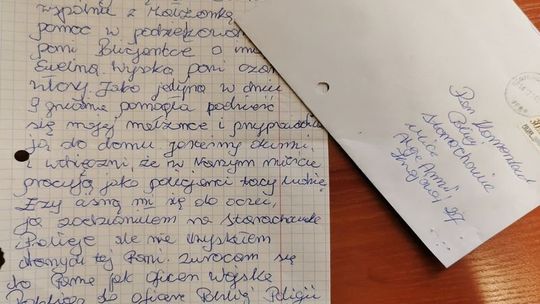 wspólnie z Małżonką
pomoc w podziękowa
pani Policjantce o i
Ewelina. Wysoka pani czar
włosy. Jako jedyna w dniu
9 grudnia pomogła podnieść
się mojej małżonce i przyprowadziła
ją do domu jesteśmy dumni
i wdzięczni, że w naszym mieście
pracują jako policjanci tacy ludzie
Łzy cisną mi się do oczu,
ja zadzwoniłem na Starachowicką
Policję ale nie uzyskałem
danych tej Pani. Zwracam się
do Pana jak oficer Wojska
Polskiego do oficera Policji
Pan Komendant
Policji
Starachowice
ulica
Armii
Krajowej 27